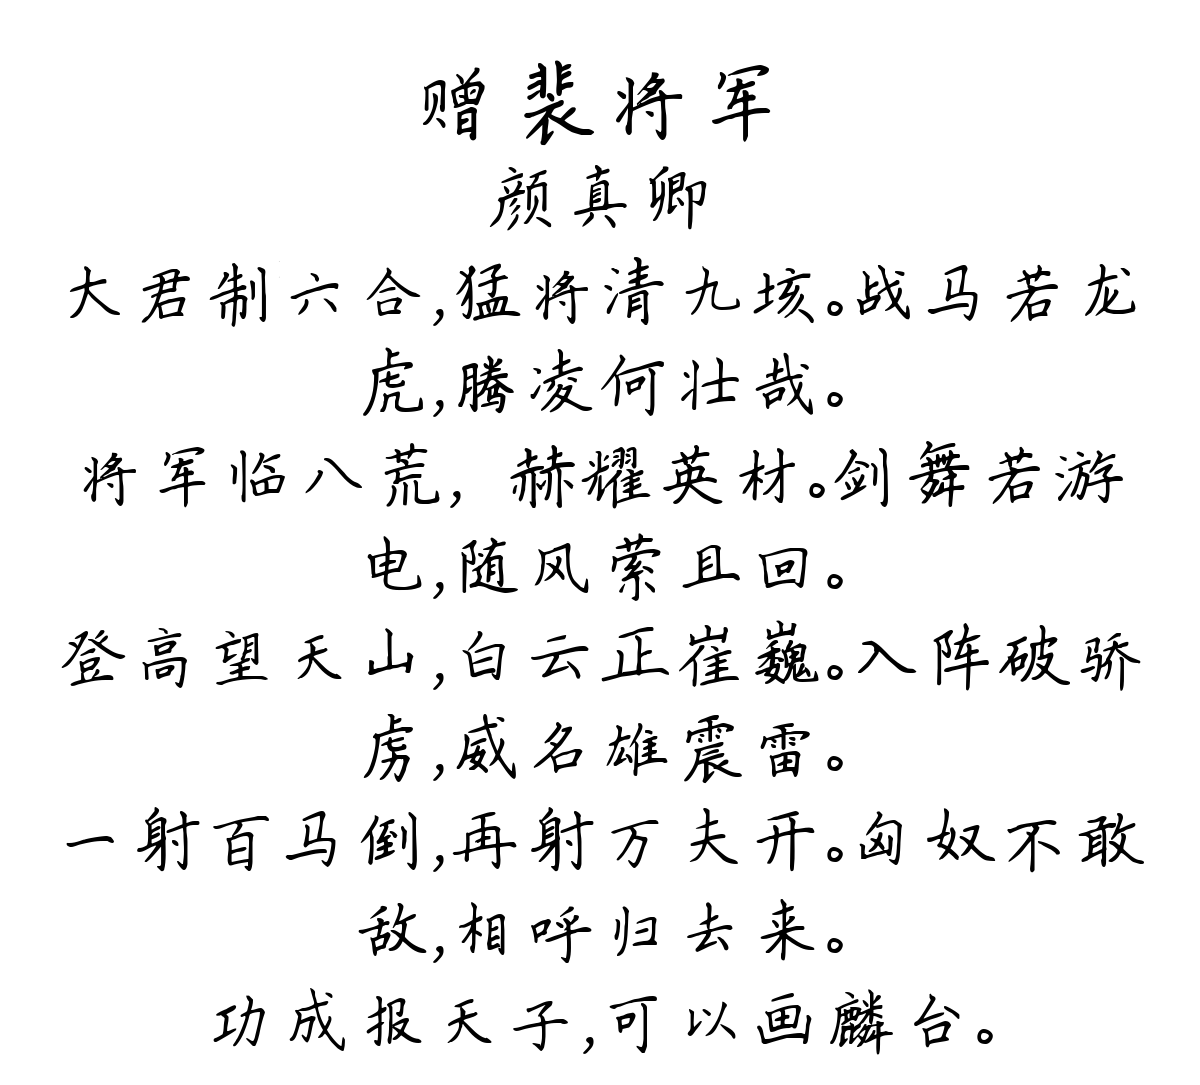 赠裴将军
颜真卿
大君制六合,猛将清九垓。战马若龙
虎,腾凌何壮哉。
将军临八荒,赫耀英材。剑舞若游
电,随风萦且回。
登高望天山,白云正崔巍。入阵破骄
虏,威名雄震雷。
一射百马倒,再射万夫开。匈奴不敢
敌,相呼归去来。
功成报天子,可以画麟台。